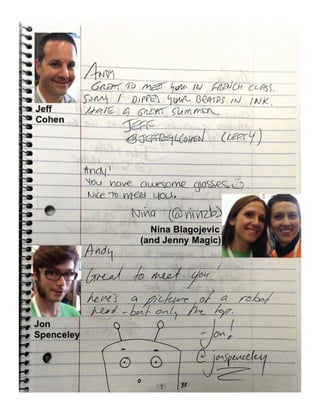 Andy
GREAT TO MEET YOU IN FRENCH CLASS.
SORRY I DIPPED YOUR BRAIDS IN INK.
HAVE A GREAT SUMMER
JEFF
@JEFFREYLCOHEN (LEFTY)
Jeff
Cohen
Andy!
You have awesome glasses
Nice to meet you.
Nina (@ninzb)
Nina Blagojevic
(and Jenny Magic)
Andy
Great to meet you!
here's a picture of a robot
head - but only the top.
- Jon!
@jonspenceley
Jon
Spenceley